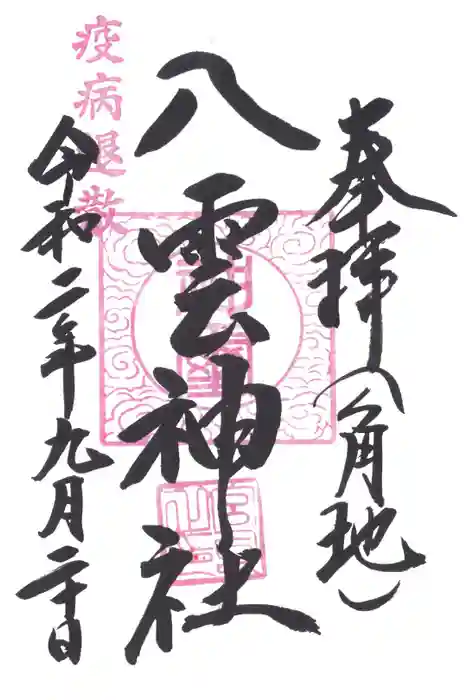 奉拝（角地）
八雲神社
令和二年九月二十日
疫病退散